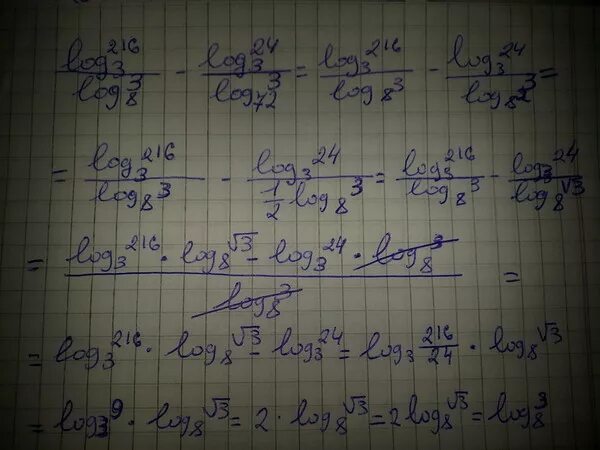 \frac{log_3 216}{log_8 3} - \frac{log_3 24}{log_{72} 3} = \frac{log_3 216}{log_8 3} - \frac{log_3 24}{log_{8^2} 3} =
= \frac{log_3 216}{log_8 3} - \frac{log_3 24}{\frac{1}{2} log_8 3} = \frac{log_3 216}{log_8 3} - \frac{log_3 24}{log_8 \sqrt{3}}
= \frac{log_3 216 \cdot log_8 \sqrt{3} - log_3 24 \cdot log_8 3}{log_8 3} =
= log_3 216 \cdot log_8 \sqrt{3} - log_3 24 = log_3 \frac{216}{24} \cdot log_8 \sqrt{3}
= log_3 9 \cdot log_8 \sqrt{3} = 2 \cdot log_8 \sqrt{3} = 2 log_8 \sqrt{3} = log_8 3